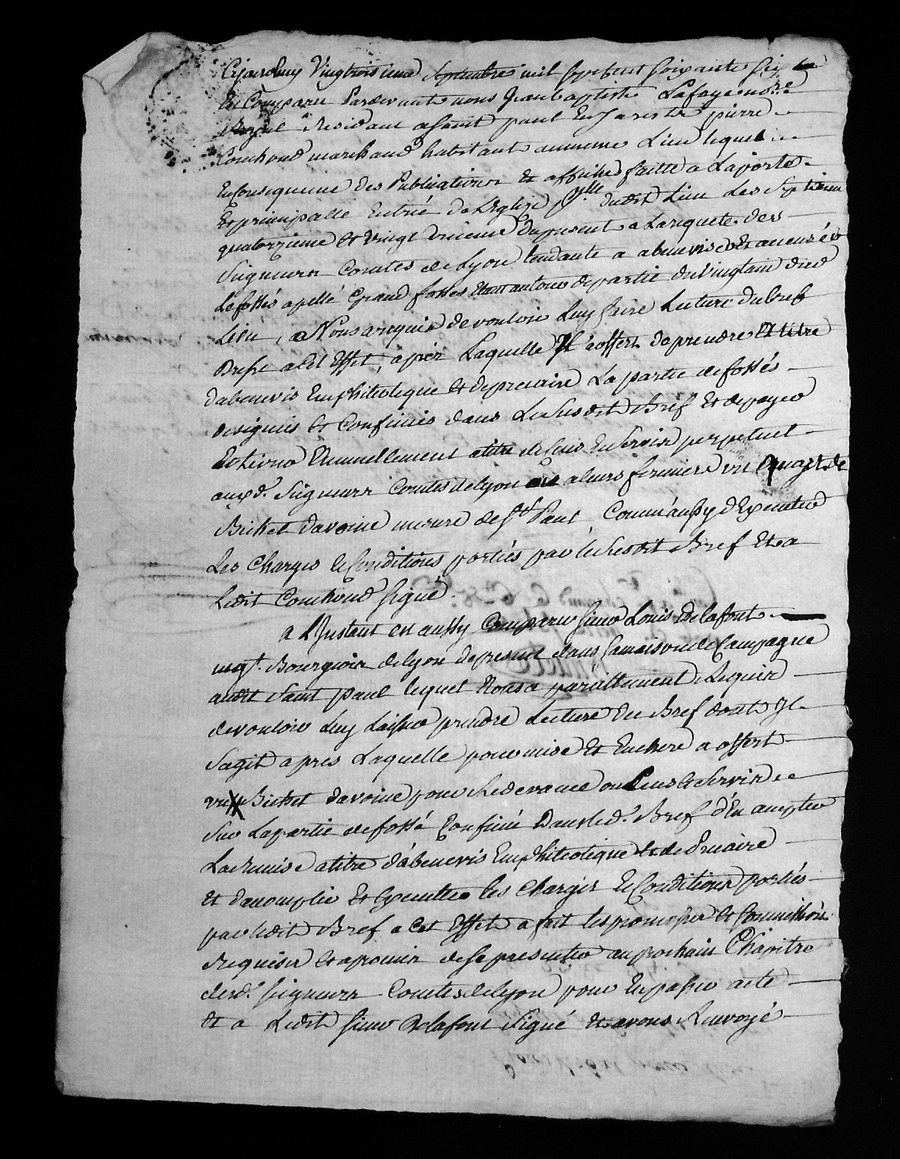 Cejourdhuy Vingttroisieme Septembre mil sept cent soixante six
Est Comparu Pardevant nous Jean baptiste Lafaye no.re
Royal Residant a Saint paul En Jarest S.r pierre
Couchoud marchand habitant au meme Lieu lequel
En Consequence des Publications et affiches faitte a La porte
Et principalle Entrée de L'Eglise p.lle dudit Lieu Les Septieme
quatorzieme et Vingt Unieme du present a La requete des
Seigneurs Comtes de Lyon tendante a abeneviser Et accenser
Le fossés apellé Grand fosses autour de partie du Vingtain dud.
Lieu, a Nous requis de vouloir luy faire Lecture du bref
Dressé a Cet Effet, après Laquelle Il a offert de prendre Et titre
d'abenevis Emphiteotique et de precaire La partie de fossés
designés Et Confinés dans Le Susdit Bref Et de payer
Et Livrer Annuellement a titre de Cens En Servis perpetuel
auxd. Seigneurs Comtes de Lyon ou a leurs fermiers un quart de
Bichet d'avoine mesure de S.t Paul, Comme aussy d'Executer
Les Charges & Conditions portées par Le Susdit Bref Et a
Ledit Couchoud signé.
a L'Instant est aussy Comparu sieur Louis Delafont
neg.t Bourgeois de Lyon de present dans Sa maison de Campagne
audit Saint paul lequel Nous a parallement Requis
de vouloir luy Laisser prendre Lecture du Bref dont Il
S'agit apres Laquelle pour mise Et Enchere a offert
un Bichet d'avoine pour Redevance ou Cens & Servis
Sur La partie de fossé Confiné Dans led. Bref d'En accepter
La Remise a titre d'abenevis Emphiteotique & de Precaire
Et d'accomplir Et Executer les Charges & Conditions portées
par ledit Bref a Cet Effet a fait les promesses & Soumissions
Requises Et a promis de Se presenter au prochain Chapitre
desd. Seigneurs Comtes de Lyon pour En passer acte
Et a Ledit sieur Delafont Signé Et avons Renvoyé